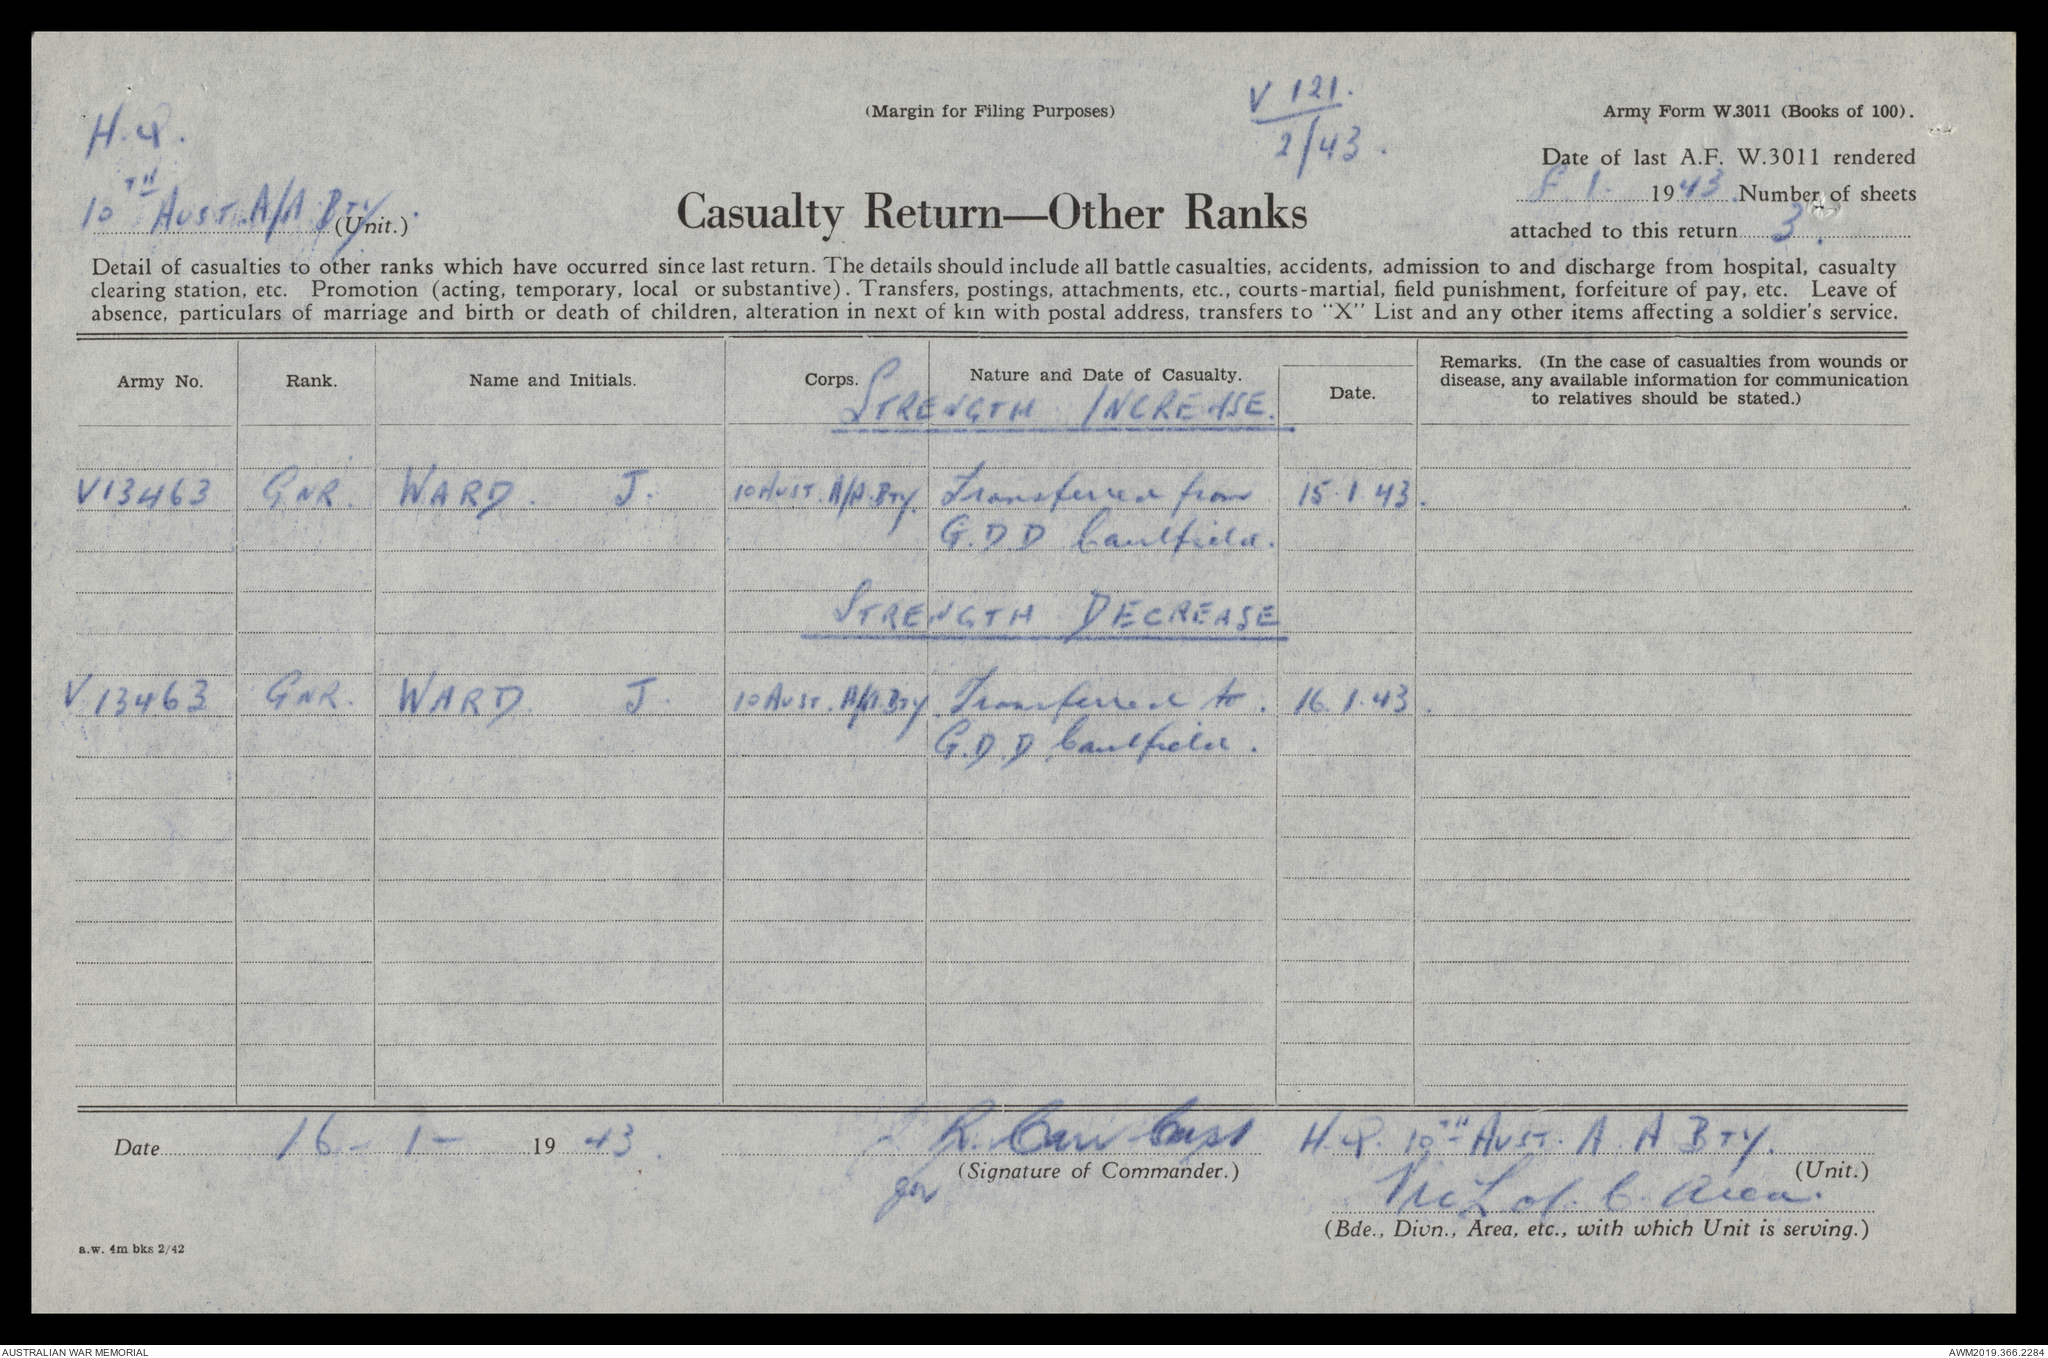 (Margin for Filing Purposes)
V 121.
2/43.
Army Form W.3011 (Books of 100).
H.Q.
10TH AUST. A/A BTY. (Unit.)
Casualty Return—Other Ranks
Date of last A.F. W.3011 rendered
1. 1943. Number of sheets
attached to this return 3.
Detail of casualties to other ranks which have occurred since last return. The details should include all battle casualties, accidents, admission to and discharge from hospital, casualty
clearing station, etc. Promotion (acting, temporary, local or substantive). Transfers, postings, attachments, etc., courts-martial, field punishment, forfeiture of pay, etc. Leave of
absence, particulars of marriage and birth or death of children, alteration in next of kin with postal address, transfers to "X" List and any other items affecting a soldier's service.
Army No. Rank. Name and Initials. Corps. Nature and Date of Casualty. Date. Remarks. (In the case of casualties from wounds or
disease, any available information for communication
to relatives should be stated.)
STRENGTH INCREASE.
V13463 GNR. WARD. J. 10 AUST. A/A. BTY. Transferred from 15.1.43.
G.D.D Caulfield.
STRENGTH DECREASE
V13463 GNR. WARD J. 10 AUST. A/A. BTY Transferred to. 16.1.43.
G.D.D Caulfield.
Date 16-1-1943. R. Carr Capt H.Q. 10TH AUST. A.A BTY.
(Signature of Commander.) (Unit.)
for
Vic L of C. Area.
(Bde., Divn., Area, etc., with which Unit is serving.)
a.w. 4m bks 2/42
AUSTRALIAN WAR MEMORIAL AWM2019.366.2284